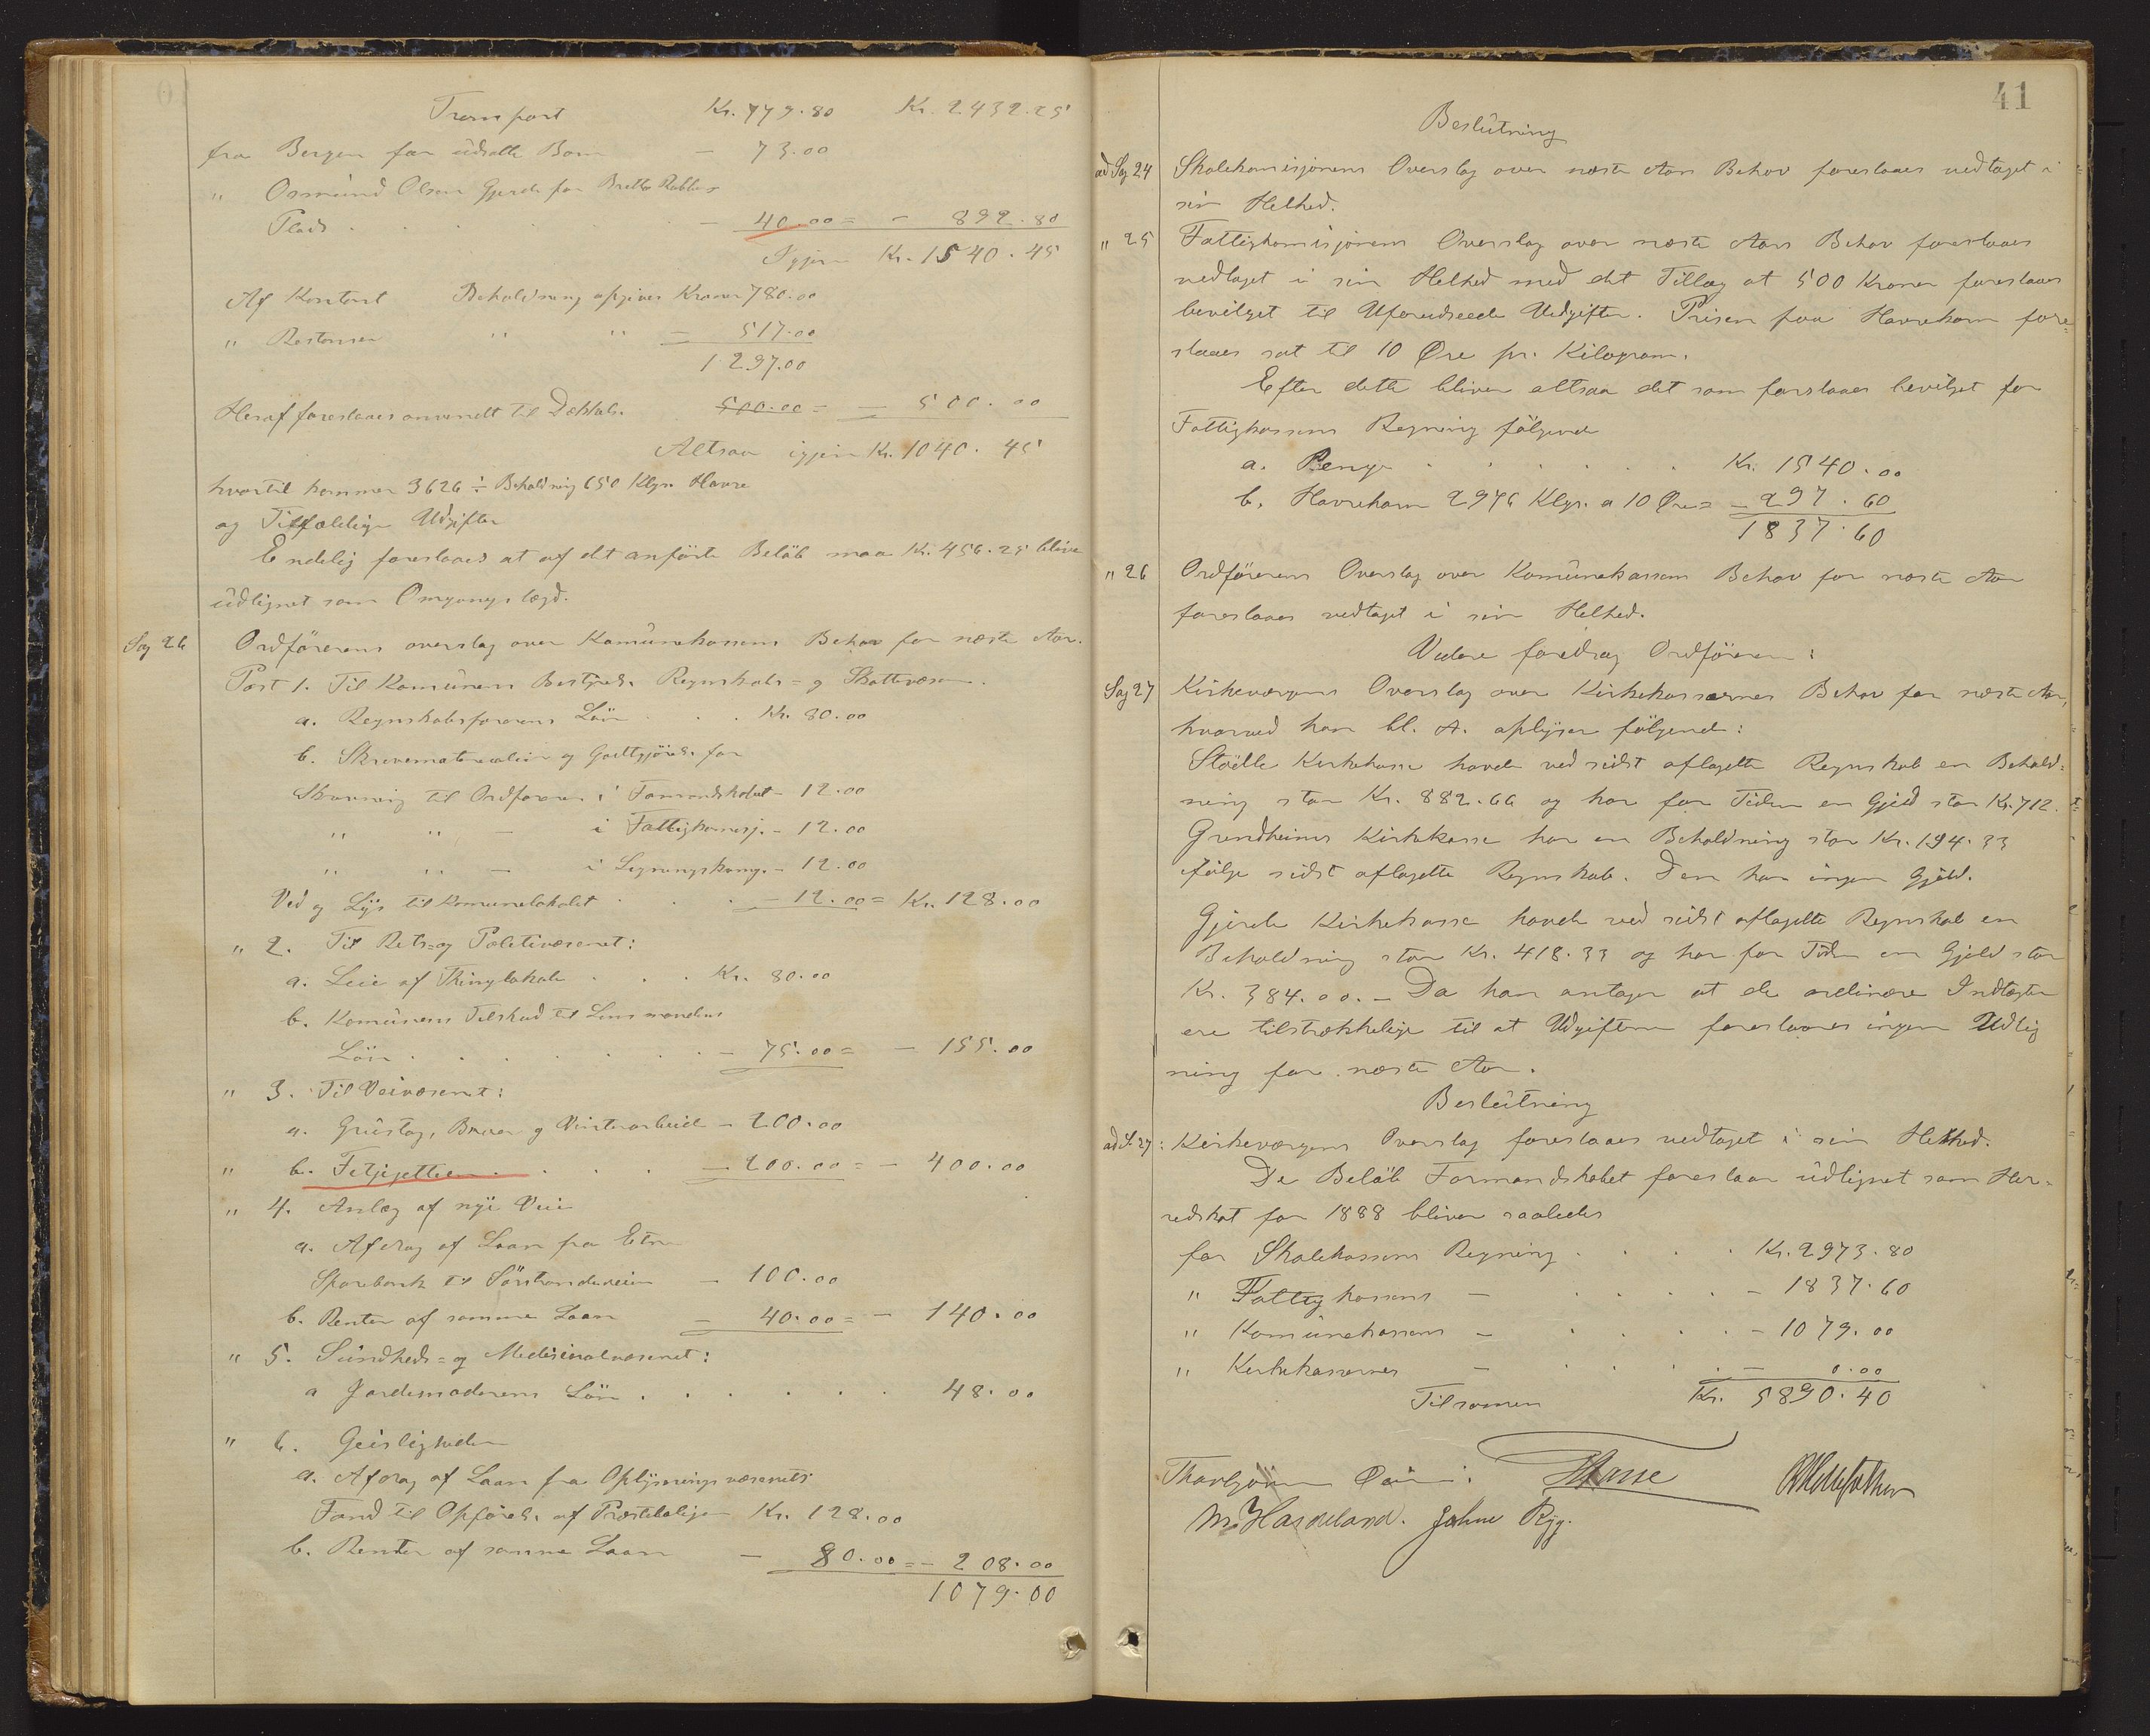 Transport Kr. 779.80 Kr. 2432.25
fra Bergen for udsatte Born – 73.00
" Osmund Olsen Gjerde for
Plads . . . – 40.00 = – 892.80
Igjen Kr. 1540.45
Af Kontant Beholdning opgives Kroner 780.00
" Restanser " " – 517.00
1297.00
Heraf foreslaaes anvendt til Dækkels. 500.00 = – 500.00
Altsaa igjen Kr. 1040.45
hvortil kommer 3626 ÷ Beholdning 650 Klgr. Havre
og Tilfældige Udgifter
Endelig foreslaaes at af det anförte Belöb maa Kr. 456.25 blive
udlignet som Omgangslægd.
Sag 26 Ordförerens overslag over Komûnekassens Behov for næste Aar.
Post 1. Til Komûnens Bestyrels. Regnskabs= og Skattevæsen.
a. Regnskabsförerens Lön . . . Kr. 80.00
b. Skrivematerialier og Godtgjörels. for
Skrivning til Ordföreren i Formandskabet – 12.00
" " – i Fattigkomisj. – 12.00
" " – i Ligningskomm. – 12.00
Ved og Lys til Komunelokalet . . . – 12.00 = Kr. 128.00
" 2. Til Rets= og Politivæsenet:
a. Leie af Thinglokale . . . Kr. 80.00
b. Komûnens Tilskud til Lensmandens
Lön . . . . . . . – 75.00 = – 155.00
" 3. Til Veivæsenet:
a. Grustag, Broer og Vinterarbeide – 200.00
" b. . . . . – 200.00 = – 400.00
" 4. Anlæg af nye Veie
a. Afdrag af Laan fra Etne
Sparebank til Sörstrandsveien – 100.00
b. Renter af samme Laan – 40.00 = – 140.00
" 5. Sûndheds= og Medicinalvæsenet:
a Jordemoderens Lön . . . . . . 48.00
" 6. Geistligheden
a. Afdrag af Laan fra Oplysningsvæsenets
Fond til Opförels. af Præstebolige Kr. 128.00
b. Renter af samme Laan – 80.00 = – 208.00
1079.00
41
Beslûtning
ad Sag 24 Skolekomisjonens Overslag over næste Aars Behov foreslaaes vedtaget i
sin Helhed.
" 25 Fattigkomisjonens Overslag over næste Aars Behov foreslaaes
vedtaget i sin Helhed med det Tillæg at 500 Kroner foreslaaes
bevilget til Uforudseede Udgifter. Prisen paa Havrekorn fore=
slaaes sat til 10 Øre pr. Kilogram.
Efter dette bliver altsaa det som forslaaes bevilget for
Fattigkassens Regning fölgende
a. Penge . . . . . . Kr. 1540.00
b. Havrekorn 2976 Klgr. a 10 Øre = – 297.60
1837.60
" 26 Ordförerens Overslag over Komûnekassens Behov for næste Aar
foreslaaes vedtaget i sin Helhed.
Videre foredrag Ordföreren:
Sag 27 Kirkeværgens Overslag over Kirkekassernes Behov for næste Aar,
hvorved han bl. A. oplyser fölgende:
Stödle Kirkekasse havde ved sidst aflagdte Regnskab en Behold=
ning stor Kr. 882.66 og har for Tiden en Gjeld stor Kr. 712.
Grindheims Kirkekasse har en Beholdning stor Kr. 194.33
ifölge sidst aflagdte Regnskab. Den har ingen Gjeld.
Gjerde Kirkekasse havde ved sidst aflagdte Regnskab en
Beholdning stor Kr. 418.33 og har for Tiden en Gjeld stor
Kr. 384.00. – Da han antager at de ordinære Indtægter
ere tilstrækkelige til at Udgifterne foreslaaes ingen Udlig
ning for næste Aar.
Beslûtning
ad S. 27: Kirkeværgens Overslag foreslaaes vedtaget i sin Helhed.
De Belöb Formandskabet foreslaar ûdlignet som Her=
redskat for 1888 bliver saaledes
for Skolekassens Regning . . . . Kr. 2973.80
" Fattigkassens – . . . . – 1837.60
" Komûnekassens – . . . . – 1079.00
" Kirkekassernes – . . . . – 0.00
Tilsamen Kr. 5890.40
Thorbjörn
M. Haaheland. Johne Ryg.